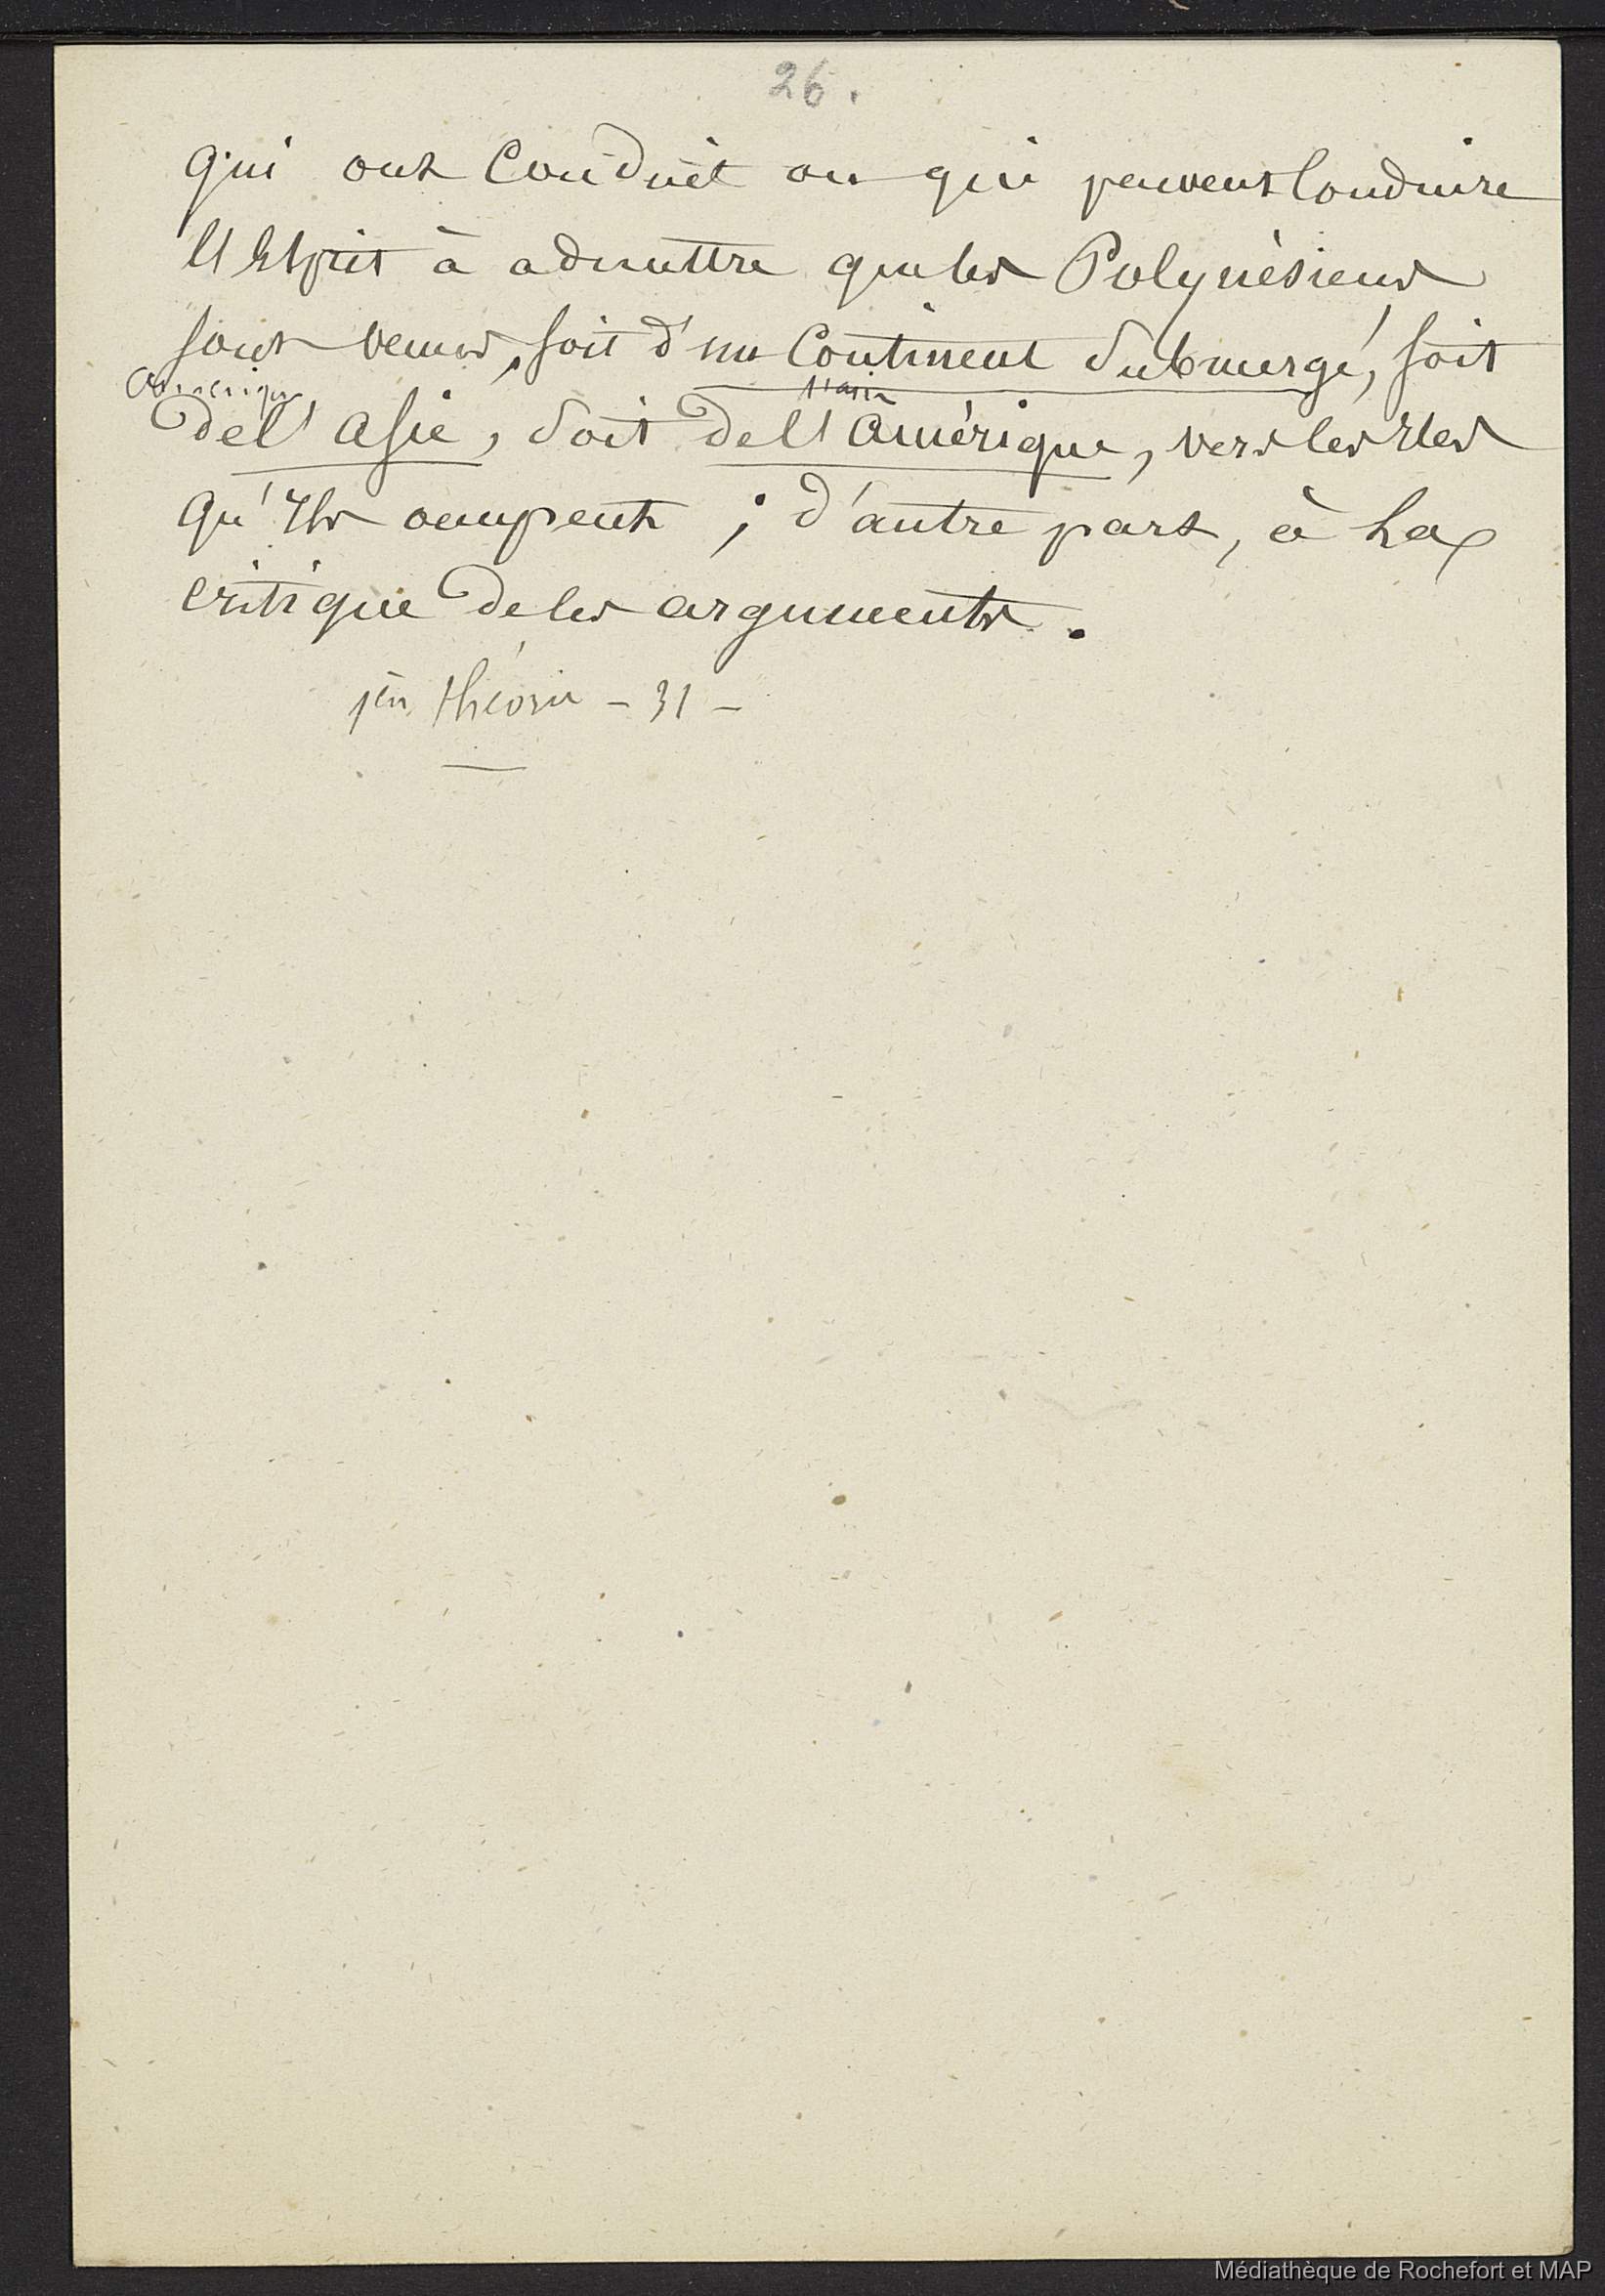 26.
qui ont conduit ou qui peuvent conduire
l'esprit à admettre que les Polynésiens
sont venus, soit d'un Continent Submergé, soit
Amérique l'asie
de l'asie, soit de l'amérique, vers les Iles
qu'Ils occupent ; d'autre part, à la
critique de ces arguments.
1ère théorie - 31 -
Médiathèque de Rochefort et MAP